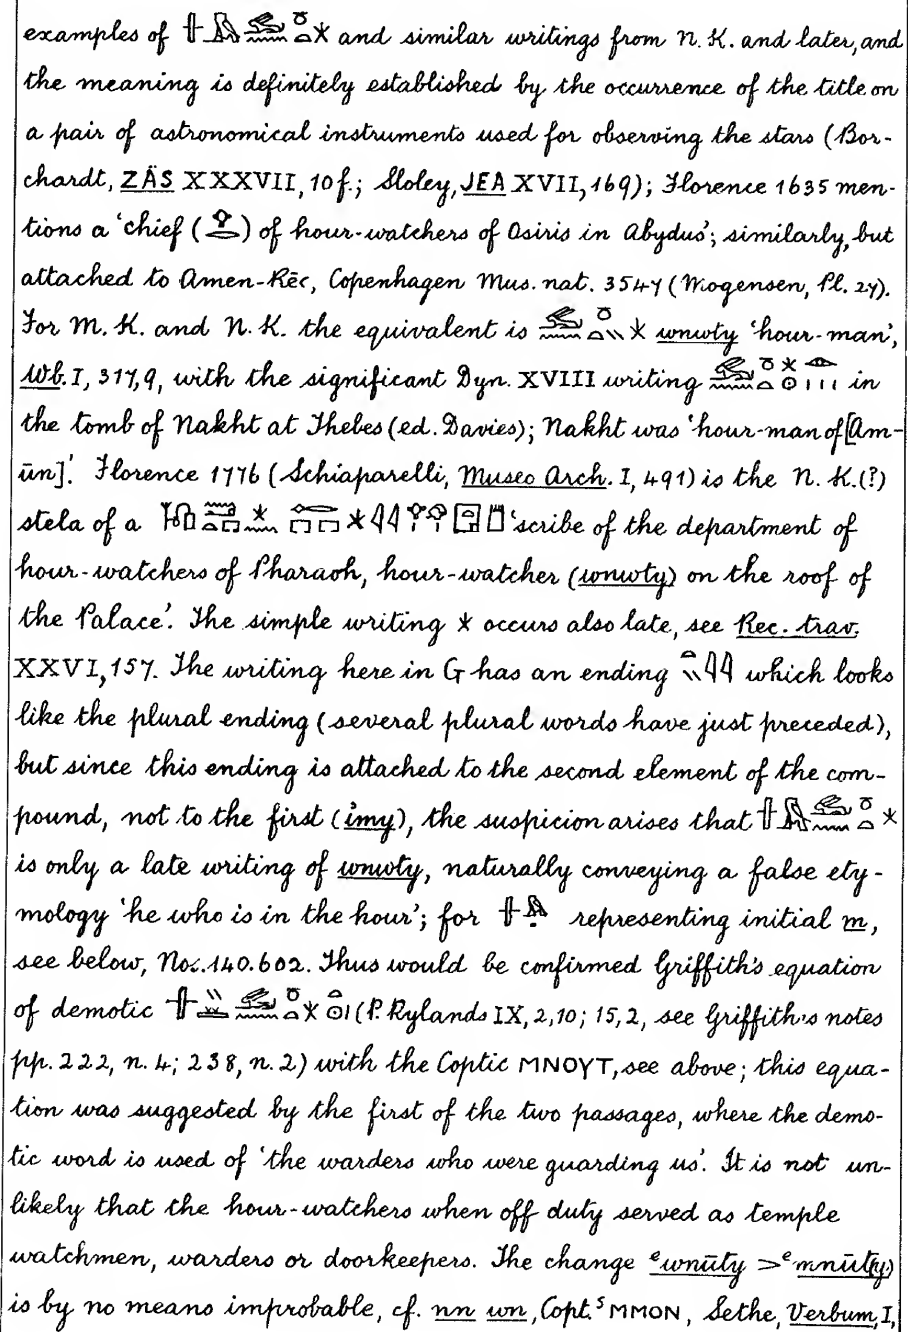 examples of and similar writings from N. K. and later, and
the meaning is definitely established by the occurrence of the title on
a pair of astronomical instruments used for observing the stars (Bor-
chardt, ZÄS XXXVII, 10 f.; Sloley, JEA XVII, 169); Florence 1635 men-
tions a 'chief ( ) of hour-watchers of Osiris in Abydus'; similarly, but
attached to Amen-Rēc, Copenhagen Mus. nat. 3547 (Mogensen, Pl. 27).
For M. K. and N. K. the equivalent is wnwty 'hour-man',
Wb. I, 317, 9, with the significant Dyn. XVIII writing in
the tomb of Nakht at Thebes (ed. Davies); Nakht was 'hour-man of [Am-
ūn]'. Florence 1776 (Schiaparelli, Museo Arch. I, 491) is the N. K. (?)
stela of a 'scribe of the department of
hour-watchers of Pharaoh, hour-watcher (wnwty) on the roof of
the Palace'. The simple writing 𓇼 occurs also late, see Rec. trav.
XXVI, 157. The writing here in G has an ending which looks
like the plural ending (several plural words have just preceded),
but since this ending is attached to the second element of the com-
pound, not to the first (ỉmy), the suspicion arises that
is only a late writing of wnwty, naturally conveying a false ety-
mology 'he who is in the hour'; for representing initial m,
see below, Nos. 140. 602. Thus would be confirmed Griffith's equation
of demotic (P. Rylands IX, 2, 10; 15, 2, see Griffith's notes
pp. 222, n. 4; 238, n. 2) with the Coptic ⲘⲚⲞⲨⲦ, see above; this equa-
tion was suggested by the first of the two passages, where the demo-
tic word is used of 'the warders who were guarding us'. It is not un-
likely that the hour-watchers when off duty served as temple
watchmen, warders or doorkeepers. The change ᵉwnūty > ᵉmnūt(y)
is by no means improbable, cf. nn wn, Copt. ˢ ⲘⲘⲞⲚ, Sethe, Verbum, I,